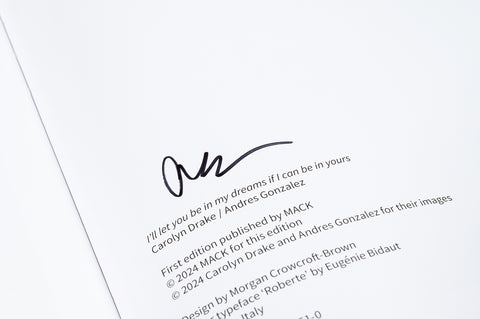 I'll let you be in my dreams if I can be in yours
Carolyn Drake / Andres Gonzalez
First edition published by MACK
© 2024 MACK for this edition
© 2024 Carolyn Drake and Andres Gonzalez for their images
Design by Morgan Crowcroft-Brown
typeface 'Roberte' by Eugénie Bidaut
Italy